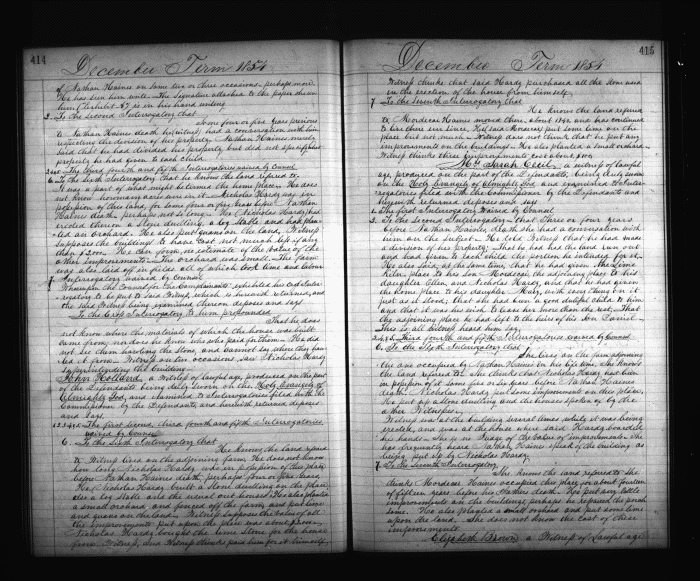 414
December Term 1854
of Nathan Haines on some two or three occasions, perhaps more
He has seen him write. The signature attached to the paper shown
him (Exhibit A) is in his hand writing
2. To the second Interrogatory that
Some four or five years previous
to Nathan Haines death he (witness) had a conversation with him
respecting the division of his property. Nathan Haines merely
said that he had divided his property but did not specify what
property he had given to each child
3 4 & 5. The third, fourth and fifth Interrogatories waived by Counsel
6. To the Sixth Interrogatory that he knows the land referred to.
It was a part of what might be termed the home place. He does
not know how many acres are in it. Nicholas Hardy was in
possession of this land, for some four or five years before Nathan
Haines death, perhaps not so long. He (Nicholas Hardy) had
erected thereon a stone dwelling, a log stable and had
an orchard. He also put guano on the land. Witness
supposes the buildings to have cost not much less if any
than $1200. He can form no estimate of the value of the
other improvements. The orchard was small. The farm
was also laid off in fields all of which took time and labour
7. Interrogatory waived by Counsel
Whereupon the Counsel for the Complainants exhibited his Cross Inter-
rogation to be put to said Witness, which is herewith returned, and
the said Witness being examined thereon deposes and says
To the Cross Interrogatory to him propounded
That he does
not know where the materials of which the house was built
came from; nor does he know who paid for them. He did
not see them hauling the stone, and cannot say where they haul-
ed it from. Witness on two occasions saw Nicholas Hardy
superintending the building
John Holland, a witness of lawful age, produced on the part
of the Defendants being duly sworn on the Holy Evangely of
Almighty God, and examined to Interrogatories filed with the
Commissioner by the Defendants, and herewith returned deposes
and says
1 2 3 4 & 5. The first second, third fourth and fifth Interrogatories
waived by Counsel
6. To the Sixth Interrogatory that
He knows the land referred
to. Witness lives on the adjoining farm. He does not know
how long Nicholas Hardy was in possession of this place
before Nathan Haines death, perhaps four or five years.
He (Nicholas Hardy) built a stone dwelling on the place
also a log stable and the usual out houses. He also planted
a small orchard and fenced off the farm, and put lime
and guano on the land. Witness supposes the value of all
the improvements put upon the place was about
Nicholas Hardy bought the lime stone for the house
from Witness, and Witness thinks paid him for it himself
415
December Term 1854
Witness thinks that said Hardy purchased all the stone used
in the erection of the house from himself
7. To the Seventh Interrogatory that
He knows the land referred
to. Mordecai Haines moved there about 1842 and has continued
to live there ever since. He (said Mordecai) put some lime on the
place but not much. Witness does not think that he put any
improvements on the buildings. He also planted a small orchard.
Witness thinks these improvements cost about $100
Mrs Sarah Cecil, a witness of lawful
age, produced on the part of the Defendants, being duly sworn
on the Holy Evangely of Almighty God and examined to Inter-
rogatories filed with the Commissioner by the Defendants and
herewith returned deposes and says
1. The first Interrogatory waived by Counsel
2. To the second Interrogatory that three or four years
before Nathan Haines death she had a conversation with
him on the subject. He told Witness that he had made
a division of his property; That he had had the land run out
and had given to each child the portion he intended for it.
He also said, at the same time, that he had given the Lime
Kiln place to his son Mordecai, the adjoining place to his
daughter Ellen, and Nicholas Hardy, and that he had given
the home place to his daughter Mary, with every thing on it
just as it stood; that she had been a good dutiful child to him
and that it was his wish to leave her more than the rest. That
the adjoining place he had left to the heirs of his son Daniel.
This is all Witness heard him say
3 4 & 5. Third fourth and fifth Interrogatories waived by Counsel
6. To the Sixth Interrogatory that
She lives on the farm adjoining
the one occupied by Nathan Haines in his life time. She knows
the land referred to. She thinks that Nicholas Hardy had been
in possession of it some five or six years before Nathan Haines
death. Nicholas Hardy put some improvements on this place.
He put up a stone dwelling and the houses spoken of by the
other Witnesses.
Witness was at the building several times while it was being
erected, and was at the house where said Hardy boarded
his hands. She is no judge of the value of improvements. She
has frequently heard Nathan Haines speak of the building as
being put up by Nicholas Hardy
7. To the Seventh Interrogatory
She knows the land referred to. She
thinks Mordecai Haines occupied this place for about fourteen
or fifteen years before his Fathers death. He put very little
improvements on the building; perhaps he repaired the porch
some. He also planted a small orchard and put some lime
upon the land. She does not know the cost of these
improvements
Elizabeth Brown a Witness of lawful age